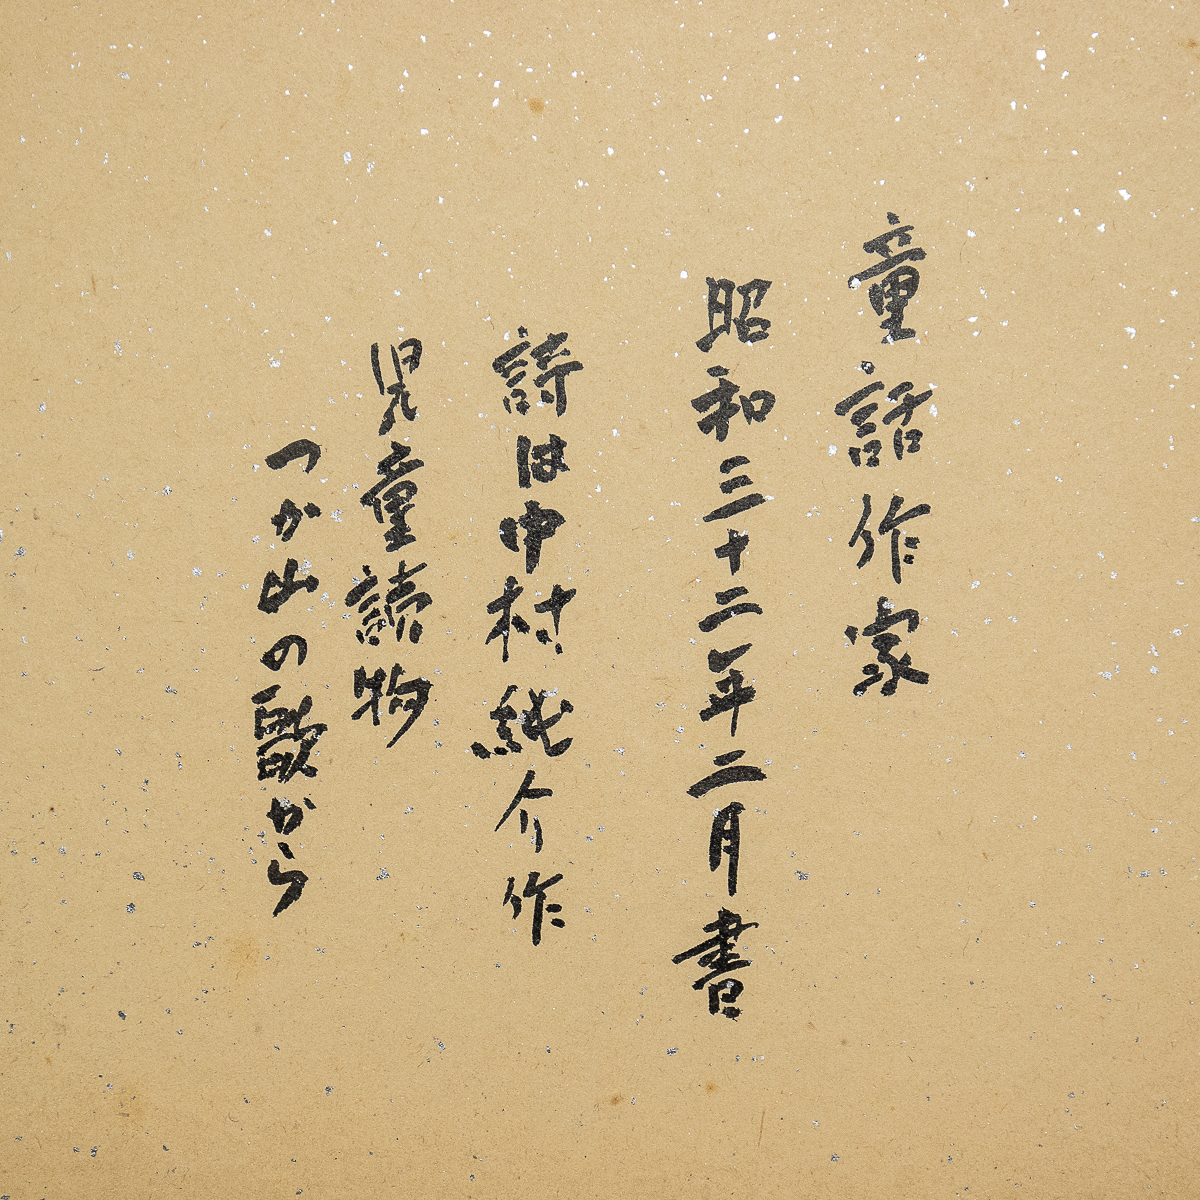 童話作家
昭和三十二年二月書
詩は中村純介作
児童読物
つか山の歌から